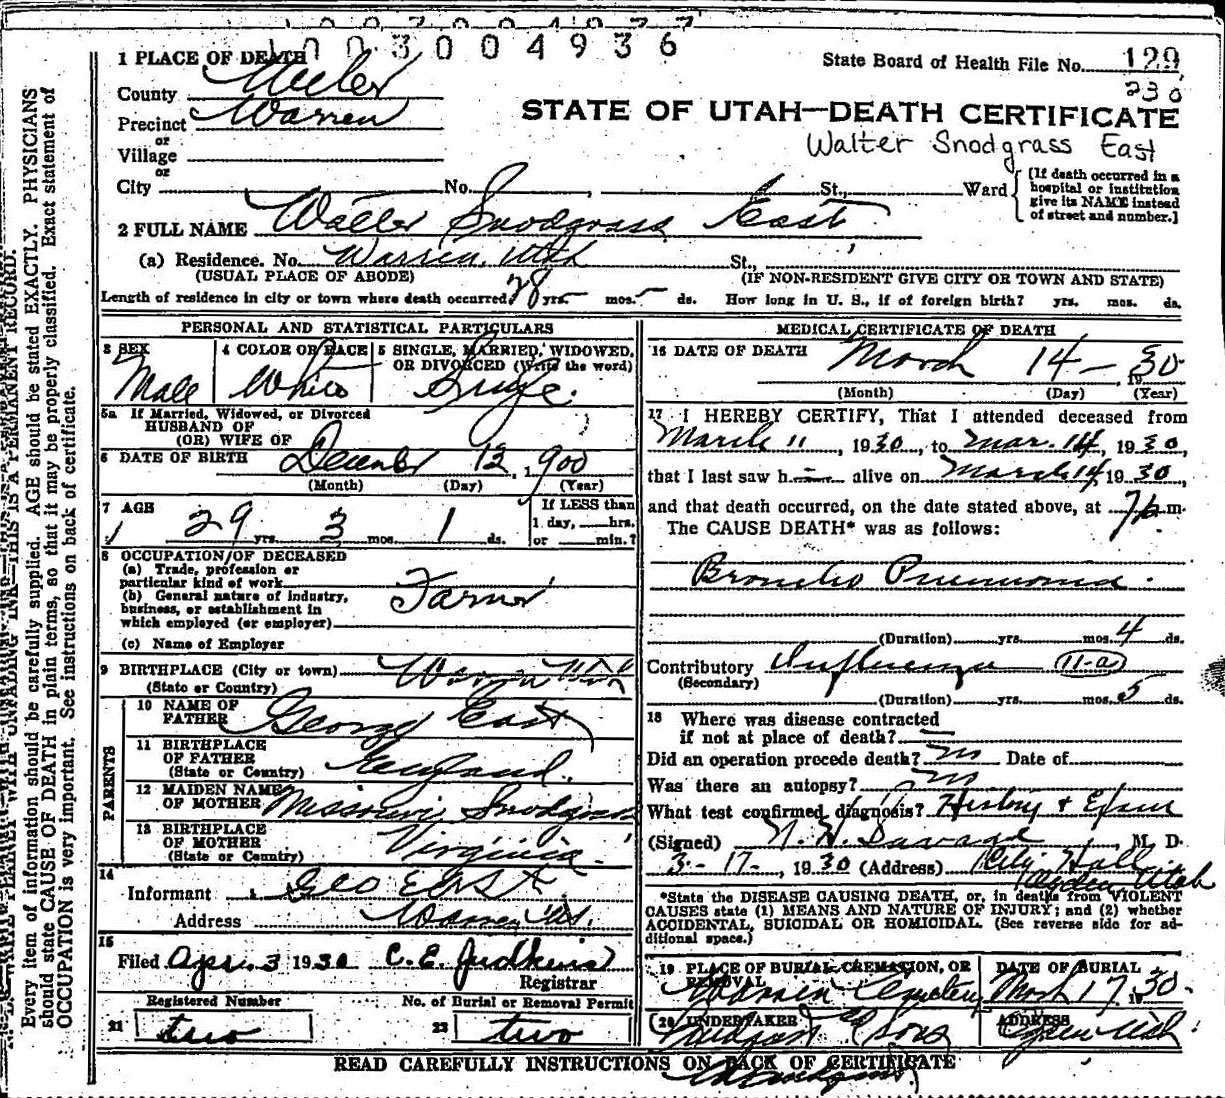 1003004936
1 PLACE OF DEATH
State Board of Health File No. 129
230
County Weber
STATE OF UTAH—DEATH CERTIFICATE
Precinct Warren
or
Village
Walter Snodgrass East
or
City No. , St., Ward
[If death occurred in a
hospital or institution
give its NAME instead
of street and number.]
2 FULL NAME Walter Snodgrass East
(a) Residence. No. Warren, Utah St.,
(USUAL PLACE OF ABODE) (IF NON-RESIDENT GIVE CITY OR TOWN AND STATE)
Length of residence in city or town where death occurred 28 yrs. mos. ds. How long in U. S., if of foreign birth? yrs. mos. ds.
PERSONAL AND STATISTICAL PARTICULARS
3 SEX
Male
4 COLOR OR RACE
White
5 SINGLE, MARRIED, WIDOWED,
OR DIVORCED (Write the word)
Single
5a If Married, Widowed, or Divorced
HUSBAND OF
(OR) WIFE OF
6 DATE OF BIRTH December 13, 1900
(Month) (Day) (Year)
7 AGE
29 yrs. 3 mos. 1 ds.
If LESS than
1 day, hrs.
or min.?
8 OCCUPATION/OF DECEASED
(a) Trade, profession or
particular kind of work
(b) General nature of industry,
business, or establishment in
which employed (or employer)
Farmer
(c) Name of Employer
9 BIRTHPLACE (City or town) Warren Utah
(State or Country)
PARENTS
10 NAME OF
FATHER George East
11 BIRTHPLACE
OF FATHER
(State or Country) England.
12 MAIDEN NAME
OF MOTHER Missouri Snodgrass
13 BIRTHPLACE
OF MOTHER
(State or Country) Virginia.
14
Informant Geo East
Address Warren Ut.
15
Filed Apr. 3 1930 C. E. Judkins
Registrar
Registered Number No. of Burial or Removal Permit
21 two 22 two
MEDICAL CERTIFICATE OF DEATH
16 DATE OF DEATH March 14 - 1930
(Month) (Day) (Year)
17 I HEREBY CERTIFY, That I attended deceased from
March 11, 1930, to Mar. 14, 1930,
that I last saw h alive on March 14, 1930,
and that death occurred, on the date stated above, at 7 p m.
The CAUSE DEATH* was as follows:
Broncho Pneumonia.
(Duration) yrs. mos. 4 ds.
Contributory Influenza 11-a
(Secondary)
(Duration) yrs. mos. 5 ds.
18 Where was disease contracted
if not at place of death?
Did an operation precede death? no Date of
Was there an autopsy? no
What test confirmed diagnosis? History & Exam
(Signed) Savage, M. D.
3-17-, 1930 (Address) City Hall
Ogden Utah
*State the DISEASE CAUSING DEATH, or, in deaths from VIOLENT
CAUSES state (1) MEANS AND NATURE OF INJURY; and (2) whether
ACCIDENTAL, SUICIDAL OR HOMICIDAL. (See reverse side for ad-
ditional space.)
19 PLACE OF BURIAL, CREMATION, OR
REMOVAL
Warren Cemetery
DATE OF BURIAL
March 17 1930.
20 UNDERTAKER
& Sons
ADDRESS
Ogden Utah
READ CAREFULLY INSTRUCTIONS ON BACK OF CERTIFICATE
THIS IS A PERMANENT RECORD.
Every item of information should be carefully supplied. AGE should be stated EXACTLY. PHYSICIANS
should state CAUSE OF DEATH in plain terms, so that it may be properly classified. Exact statement of
OCCUPATION is very important. See instructions on back of certificate.